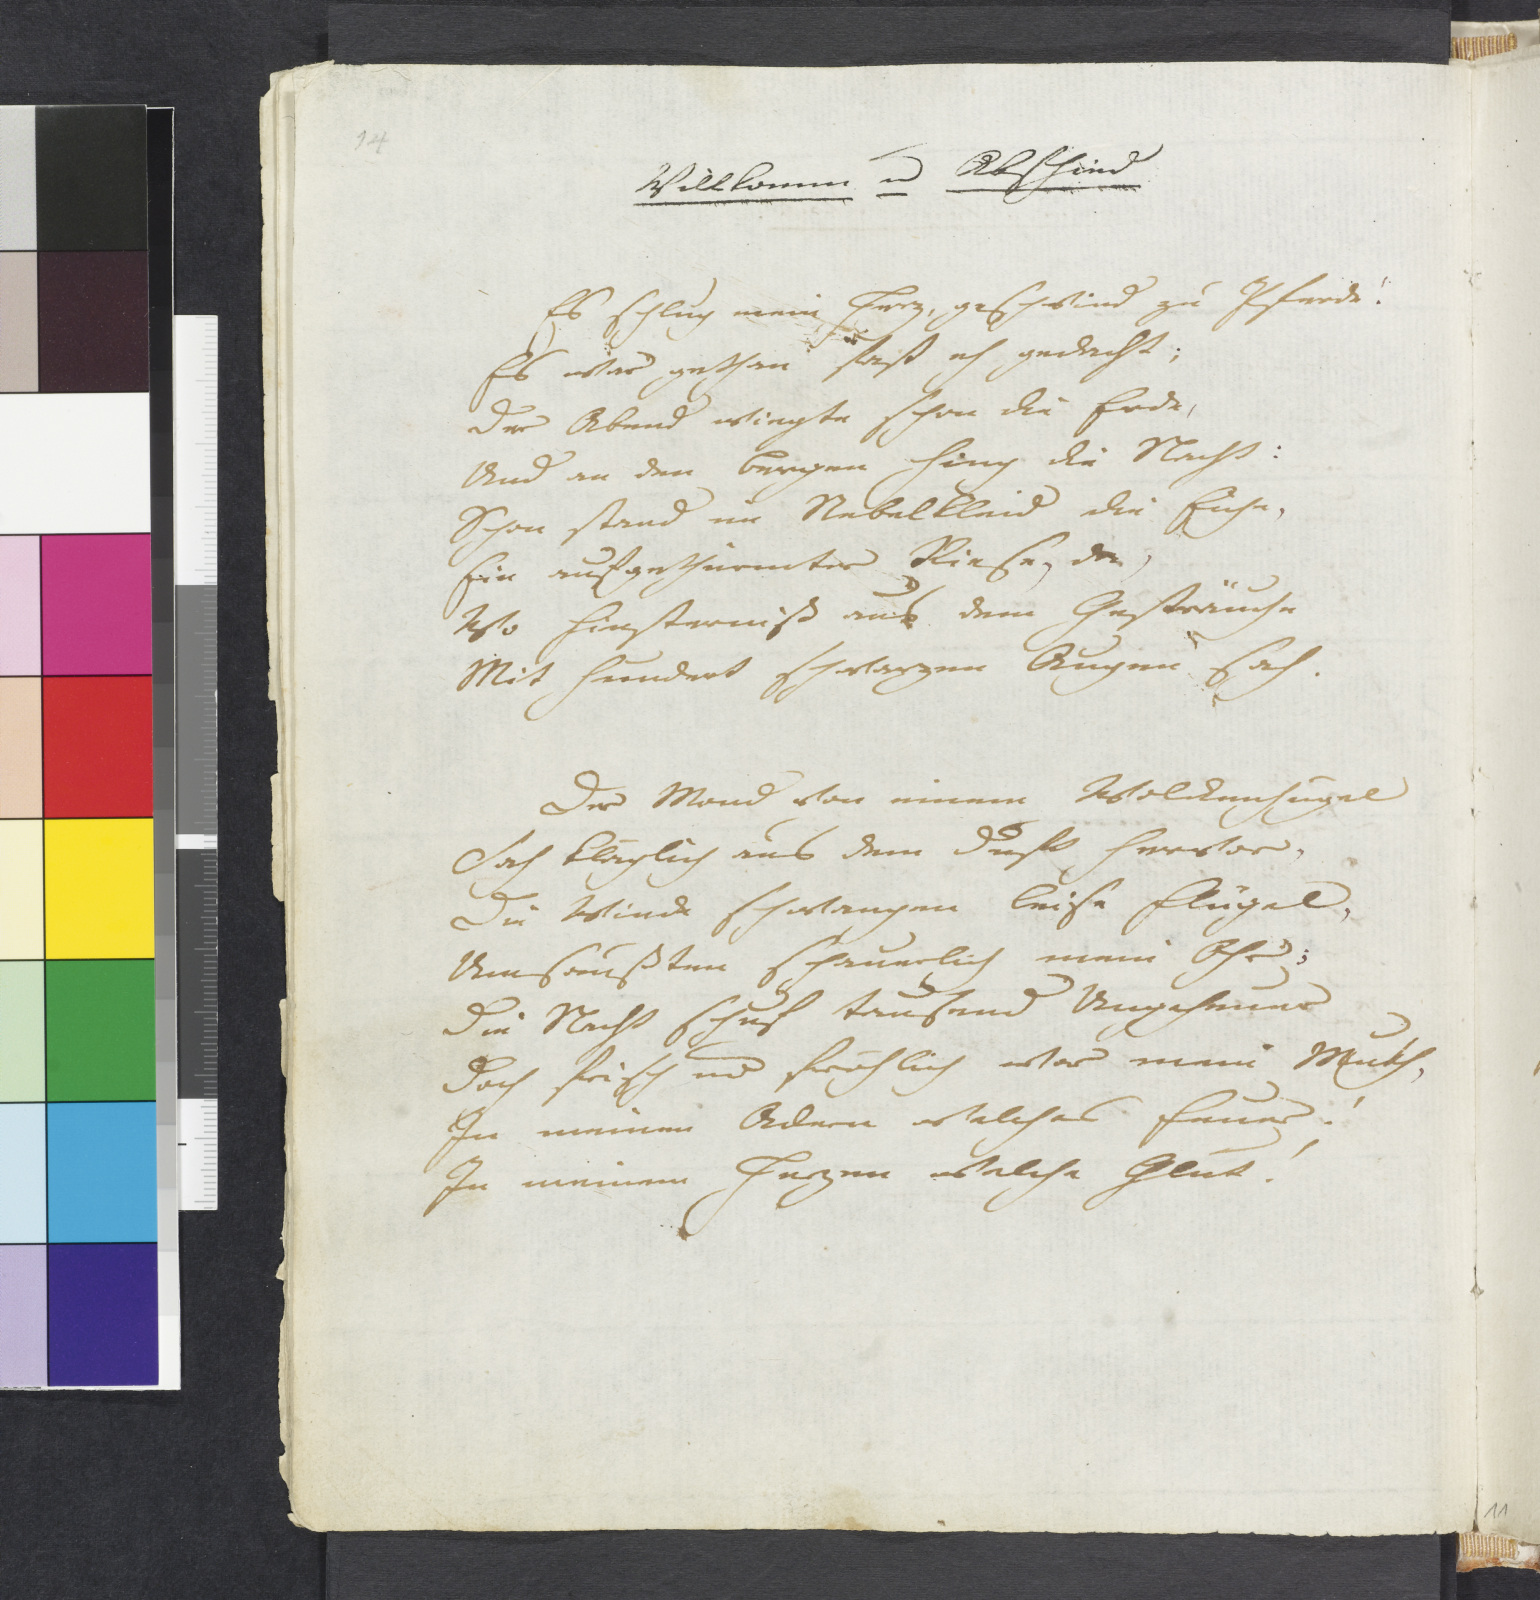 14
Willkomm u Abschied
Es schlug mein Herz, geschwind zu Pferde!
Es war gethan fast eh gedacht;
Der Abend wiegte schon die Erde,
Und an den Bergen hing die Nacht:
Schon stand im Nebelkleid die Eiche,
Ein aufgethürmter Riese, da,
Wo Finsterniß aus dem Gesträuche
Mit hundert schwarzen Augen sah.
Der Mond von einem Wolckenhügel
Sah kläglich aus dem Duft hervor,
Die Winde schwangen leise Flügel,
Umsaußten schauerlich mein Ohr;
Die Nacht schuf tausend Ungeheuer
Doch frisch und fröhlich war mein Muth,
In meinen Adern welches Feuer!
In meinem Herzen welche Glut!
11